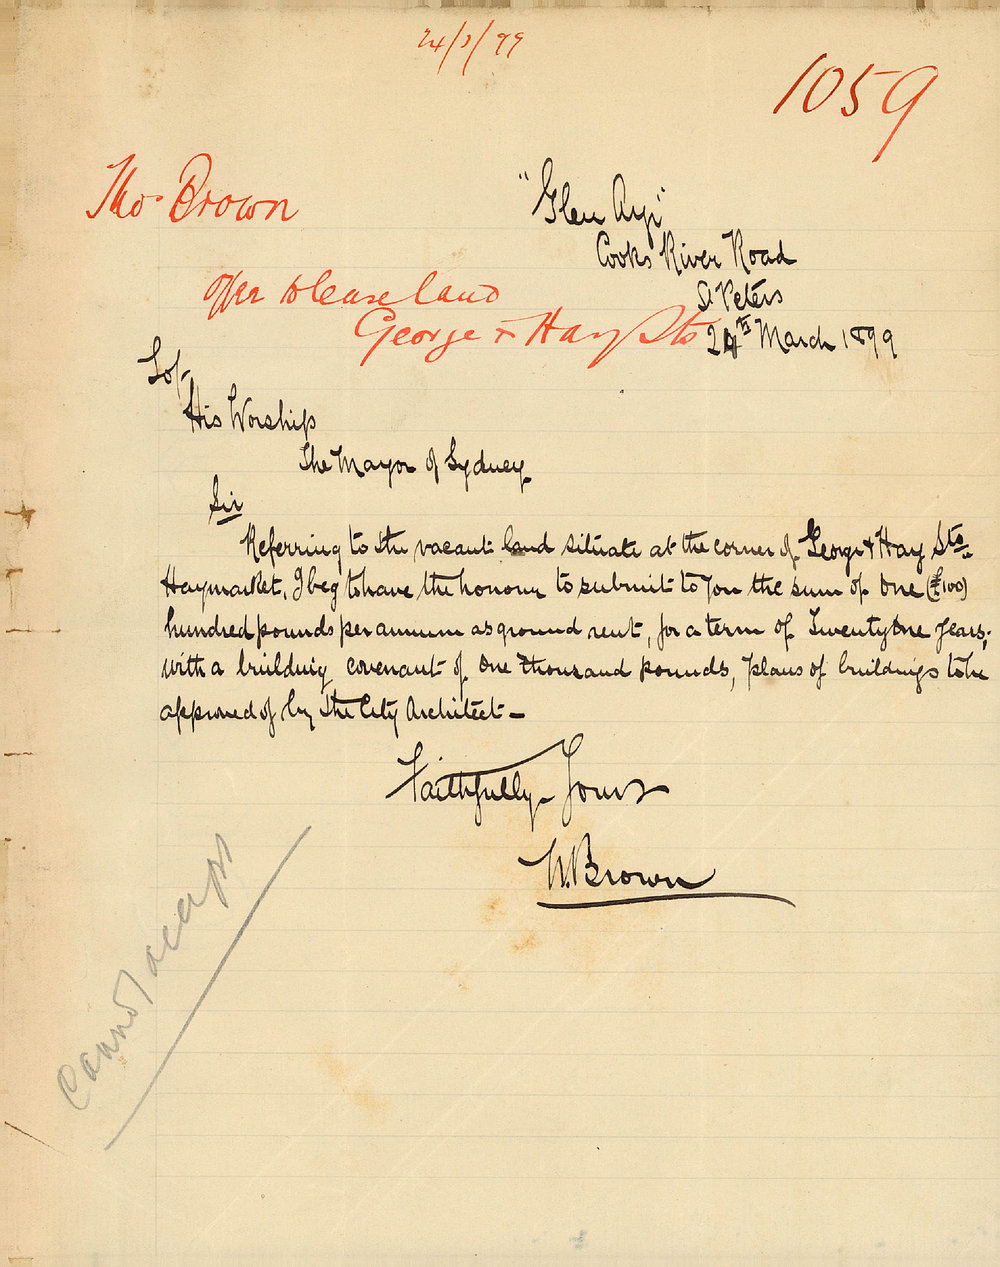 24/3/99
1059
Tho⁠s Brown
"Glen Ayr"
Cooks River Road
Offer to lease land
St Peters
George & Hay Sts
24th March 1899
To/-
His Worship
The Mayor of Sydney
Sir
Referring to the vacant land situate at the corner of George & Hay Sts
Haymarket, I beg to have the honour to submit to you the sum of One (£100)
hundred pounds per annum as ground rent, for a term of Twenty One Years;
with a building covenant of One thousand pounds, plans of buildings to be
approved of by the City Architect -
Faithfully Yours
Brown
Cannot accept